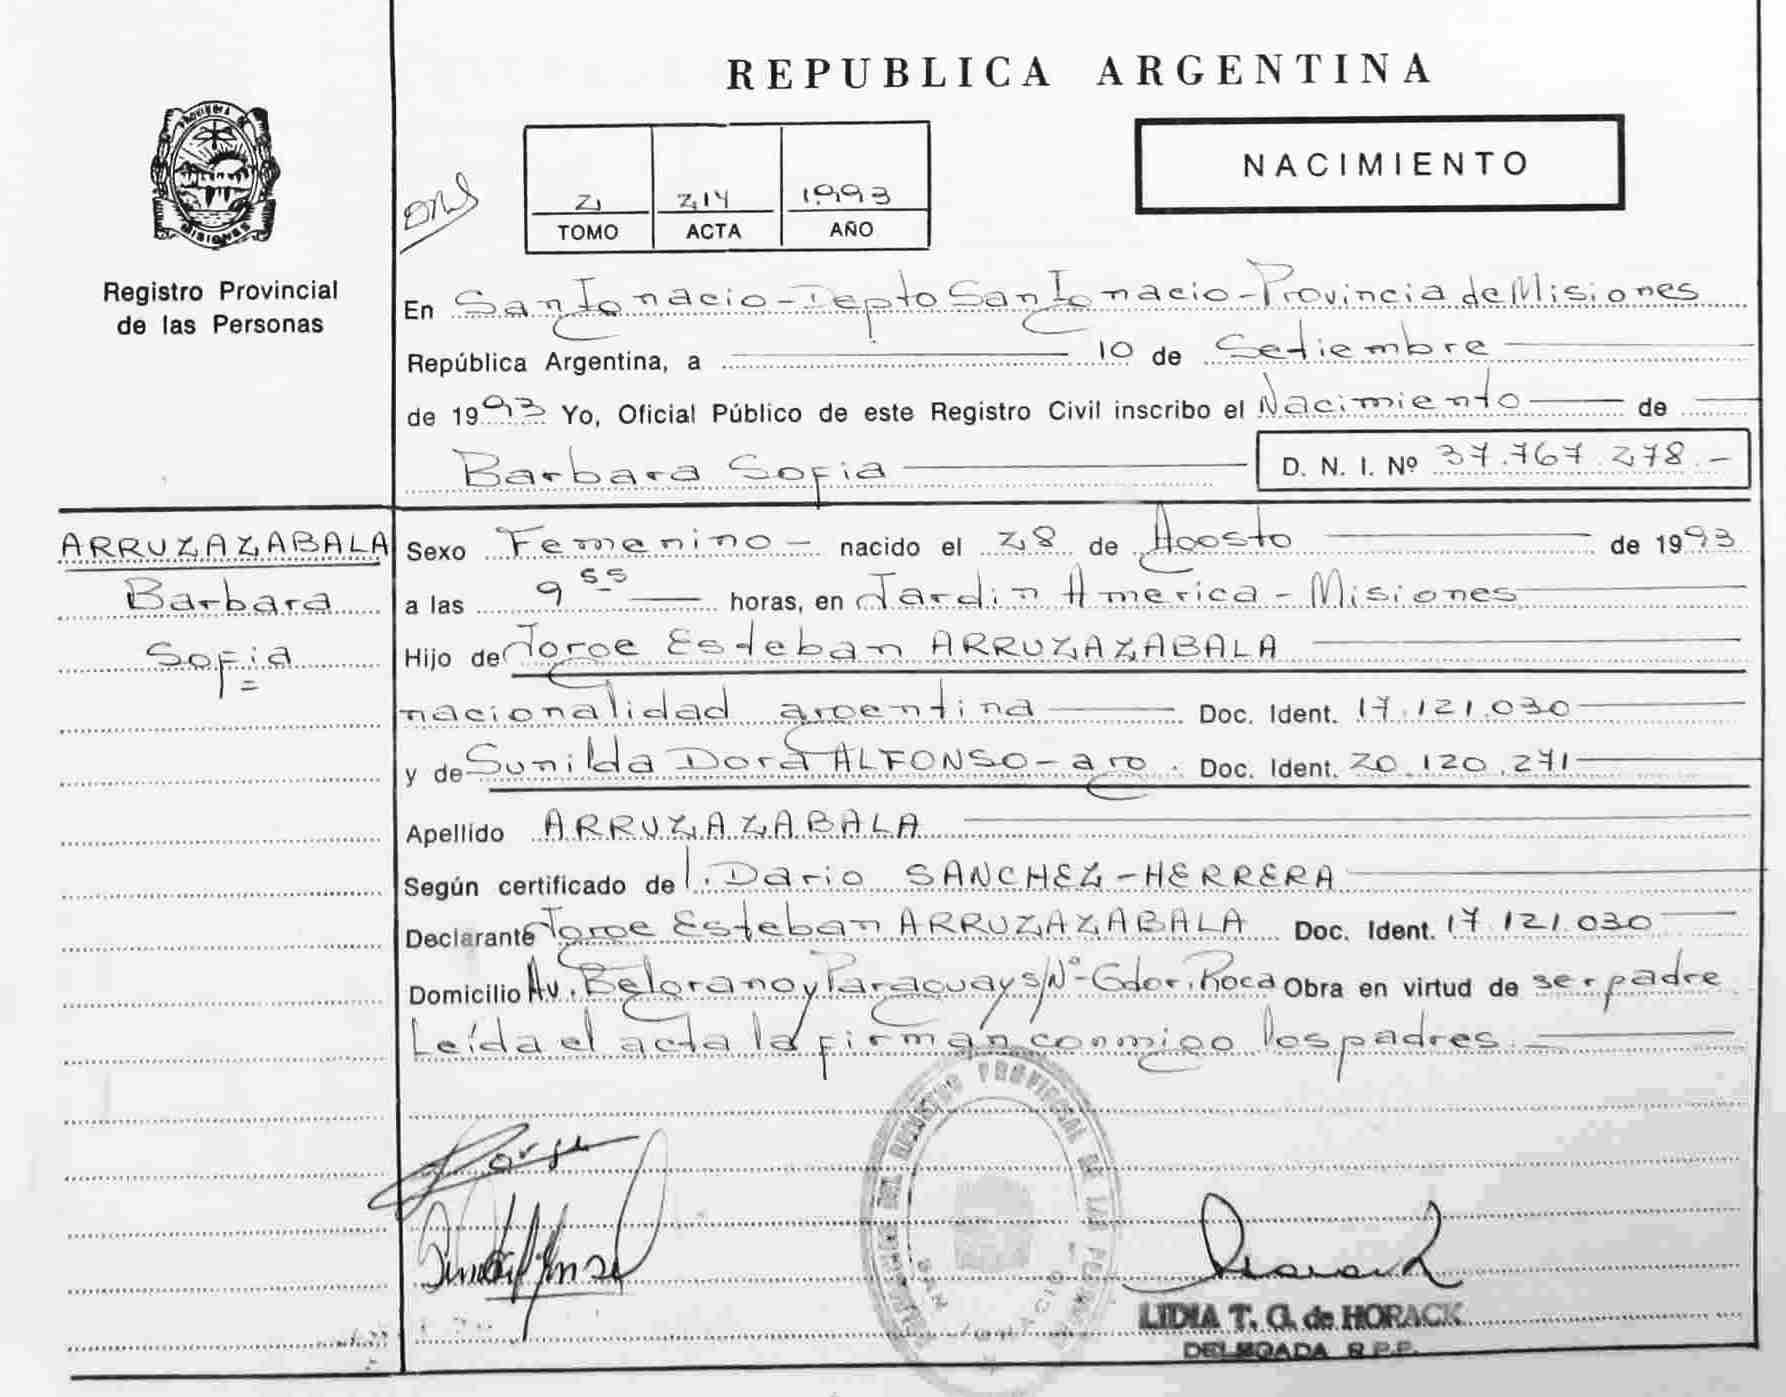 REPUBLICA ARGENTINA
PROVINCIA DE
MISIONES
Registro Provincial
de las Personas
2 214 1993
TOMO ACTA AÑO
NACIMIENTO
En San Ignacio - Depto San Ignacio - Provincia de Misiones
República Argentina, a 10 de Setiembre
de 1993 Yo, Oficial Público de este Registro Civil inscribo el Nacimiento de
Barbara Sofia D. N. I. Nº 37.767.278.-
ARRUZAZABALA
Barbara
Sofia
Sexo Femenino - nacido el 28 de Agosto de 1993
a las 9 55 horas, en Jardin America - Misiones
Hijo de Jorge Esteban ARRUZAZABALA
nacionalidad argentina Doc. Ident. 17.121.030
y de Sunilda Dora ALFONSO - arg. Doc. Ident. 20.120.271
Apellido ARRUZAZABALA
Según certificado de Dario SANCHEZ - HERRERA
Declarante Jorge Esteban ARRUZAZABALA Doc. Ident. 17.121.030
Domicilio Av. Belgrano y Paraguay s/Nº - Gdor. Roca Obra en virtud de ser padre
Leída el acta la firman conmigo los padres.
DEL REGISTRO PROVINCIAL DE LAS
SAN IGNACIO
LIDIA T. G. de HORACK
DELEGADA R.P.P.